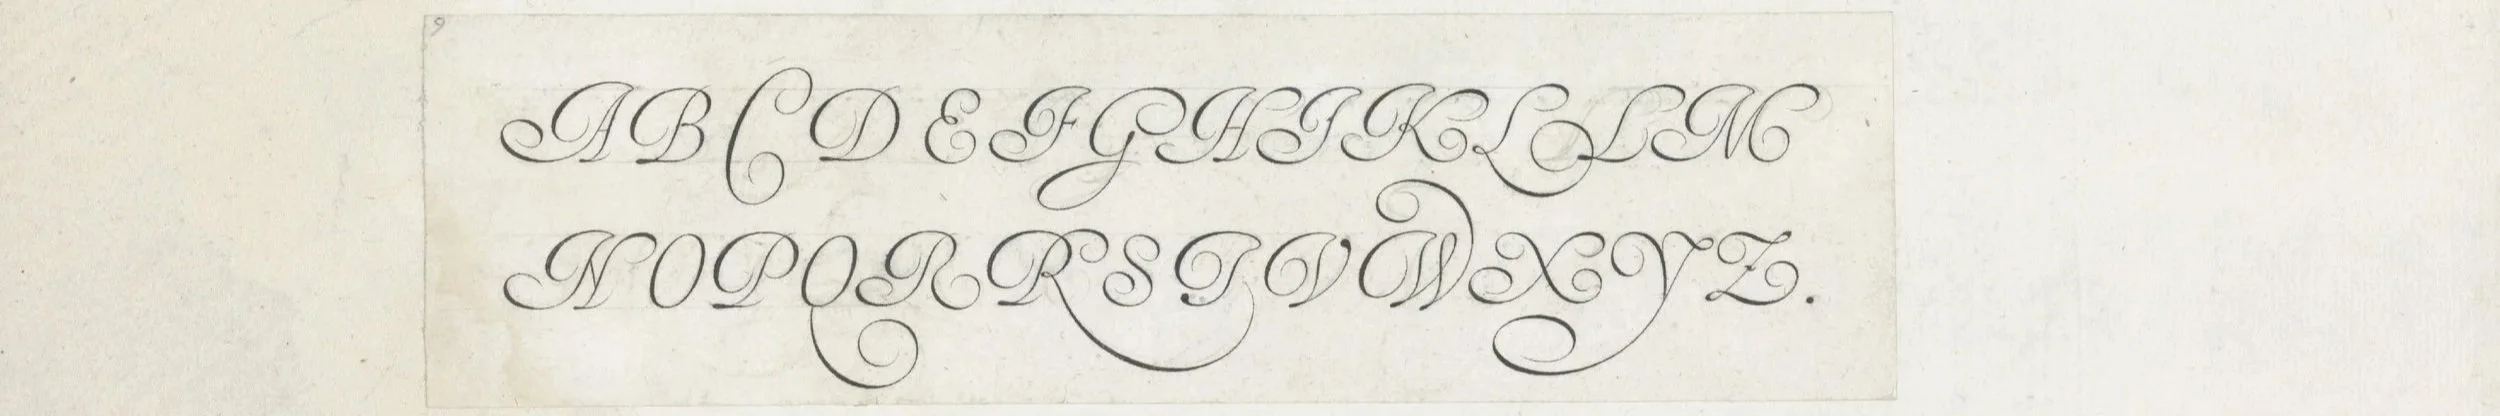 9
A B C D E F G H I K L L M
N O P Q R R S T V W X Y Z.